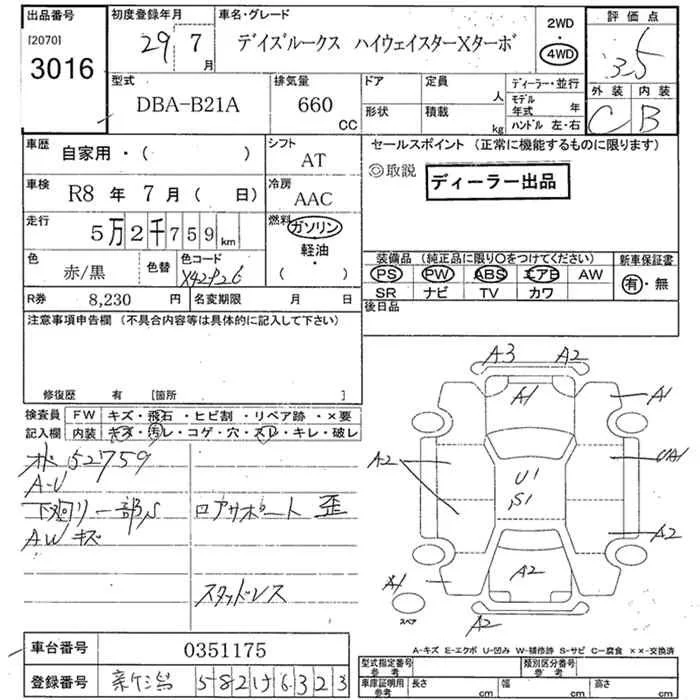 出品番号
[2070]
3016
初度登録年月
29 7月
車名・グレード
デイズルークス ハイウェイスターXターボ
2WD・4WD
評価点
3.5
外装 内装
C B
型式
DBA-B21A
排気量
660 CC
ドア
形状
定員 人
積載 kg
ディーラー・並行
モデル年式 年
ハンドル 左・右
車歴 自家用・( )
シフト AT
車検 R8 年 7 月 ( 日)
冷房 AAC
走行 5万2千759km
燃料 ガソリン・軽油・( )
色 赤/黒 色替 色コード
R券 8,230 円 名変期限 月 日
セールスポイント (正常に機能するものに限ります)
◎取説 ディーラー出品
装備品 (純正品に限り○をつけてください) 新車保証書
PS PW ABS エアB AW 有・無
SR ナビ TV カワ
後日品
注意事項申告欄 (不具合内容等は具体的に記入して下さい)
修復歴 有 [箇所 ]
検査員記入欄
FW キズ・飛石・ヒビ割・リペア跡・×要
内装 キズ・汚レ・コゲ・穴・スレ・キレ・破レ
52759
A-U
下廻り一部S ロアサポート歪
AWキズ
スタッドレス
A3 A2
A1 A1
A2 U1 S1 UA1
A2
A1 A2
スペア
A2
A-キズ E-エクボ U-凹み W-補修跡 S-サビ C-腐食 ××-交換済
車台番号 0351175
登録番号 6323
型式指定番号 参考 類別区分番号 参考
車庫証明用 参考 長さ cm 幅 cm 高さ cm